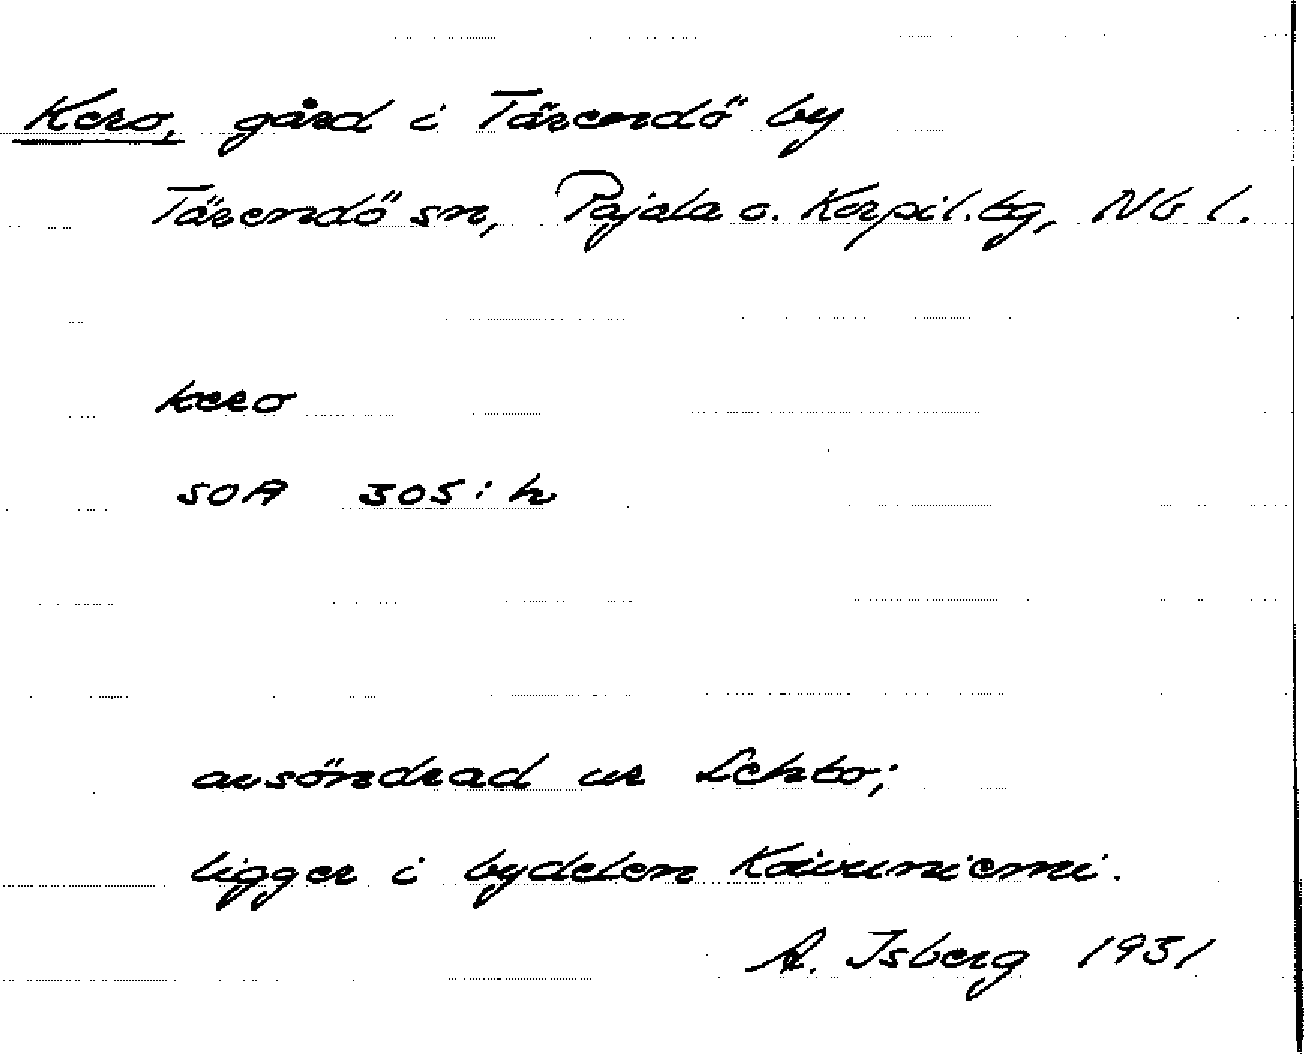 Kero, gård i Tärendö by
Tärendö sn, Pajala o. Korpil. tg, Nb l.
kero
SOA 305: h
avsöndrad ur Lehto;
ligger i bydelen Koivuniemi.
A. Isberg 1931